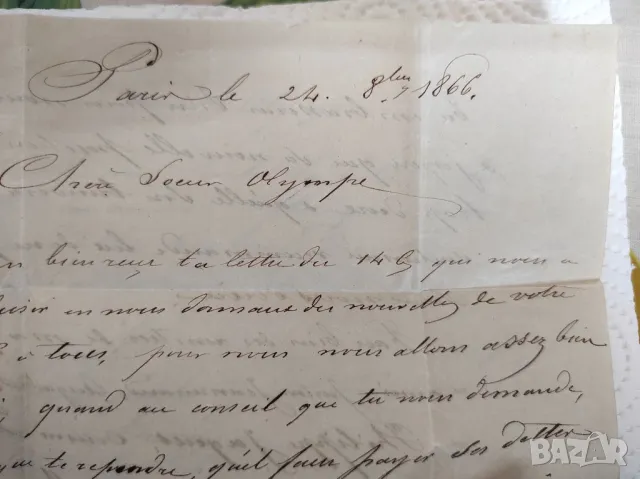 Paris le 24. 8bre 1866.
Chère Soeur Olympe
bien reçu ta lettre du 14 Ct qui nous a
en nous donnant des nouvelles de votre
à tous, pour nous nous allons assez bien
quand au conseil que tu nous demande,
que te repondre, qu'il faut payer ses dettes
bazar.bg